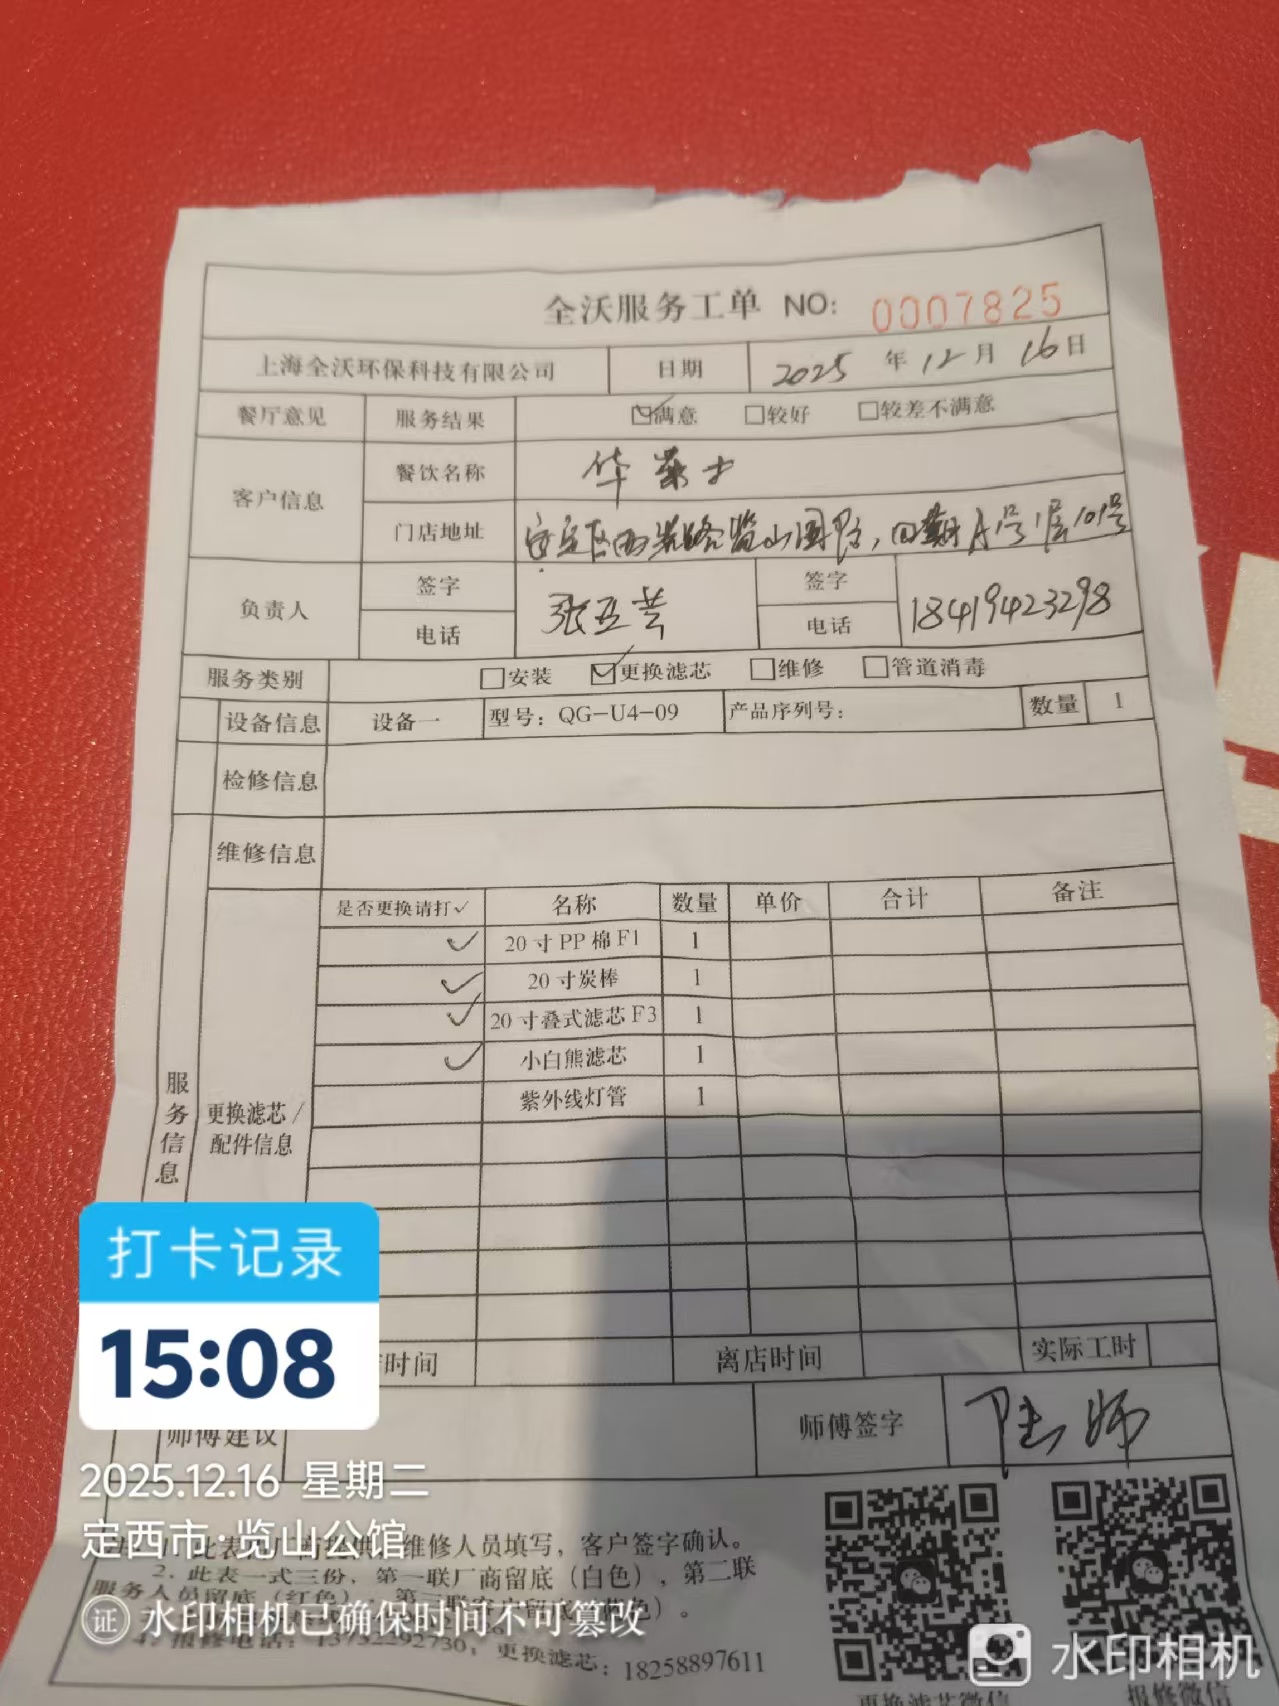 全沃服务工单 NO: 0007825
上海全沃环保科技有限公司 日期 2025 年 12 月 16 日
餐厅意见 服务结果 ☑满意 □较好 □较差不满意
客户信息 餐饮名称 华莱士
门店地址 安定区西 路 山 A号1层101号
负责人 签字 电话 张亚芸 签字 电话 18419423298
服务类别 □安装 ☑更换滤芯 □维修 □管道消毒
设备信息 设备一 型号：QG-U4-09 产品序列号： 数量 1
检修信息
维修信息
服务信息
更换滤芯/配件信息
是否更换请打✓ 名称 数量 单价 合计 备注
✓ 20寸PP棉F1 1
✓ 20寸炭棒 1
✓ 20寸叠式滤芯F3 1
✓ 小白熊滤芯 1
紫外线灯管 1
时间 离店时间 实际工时
师傅建议 师傅签字 陆师
打卡记录
15:08
2025.12.16 星期二
定西市·览山公馆
维修人员填写，客户签字确认。
2. 此表一式三份，第一联厂商留底（白色），第二联
服务人员留底（红色）
水印相机已确保时间不可篡改
4. 报修电话：13732292730；更换滤芯：18258897611
更换滤芯微信 报修微信
水印相机